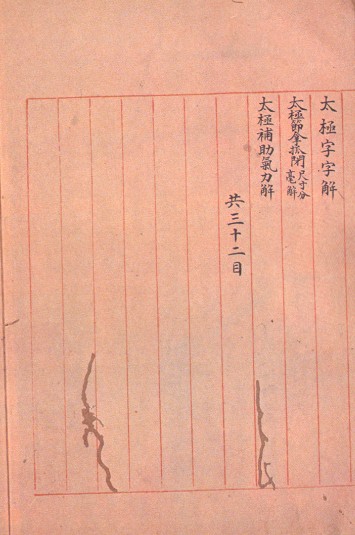 太極字字解
太極節拿抓閉尺寸分毫解
太極補助氣力解
共三十二目